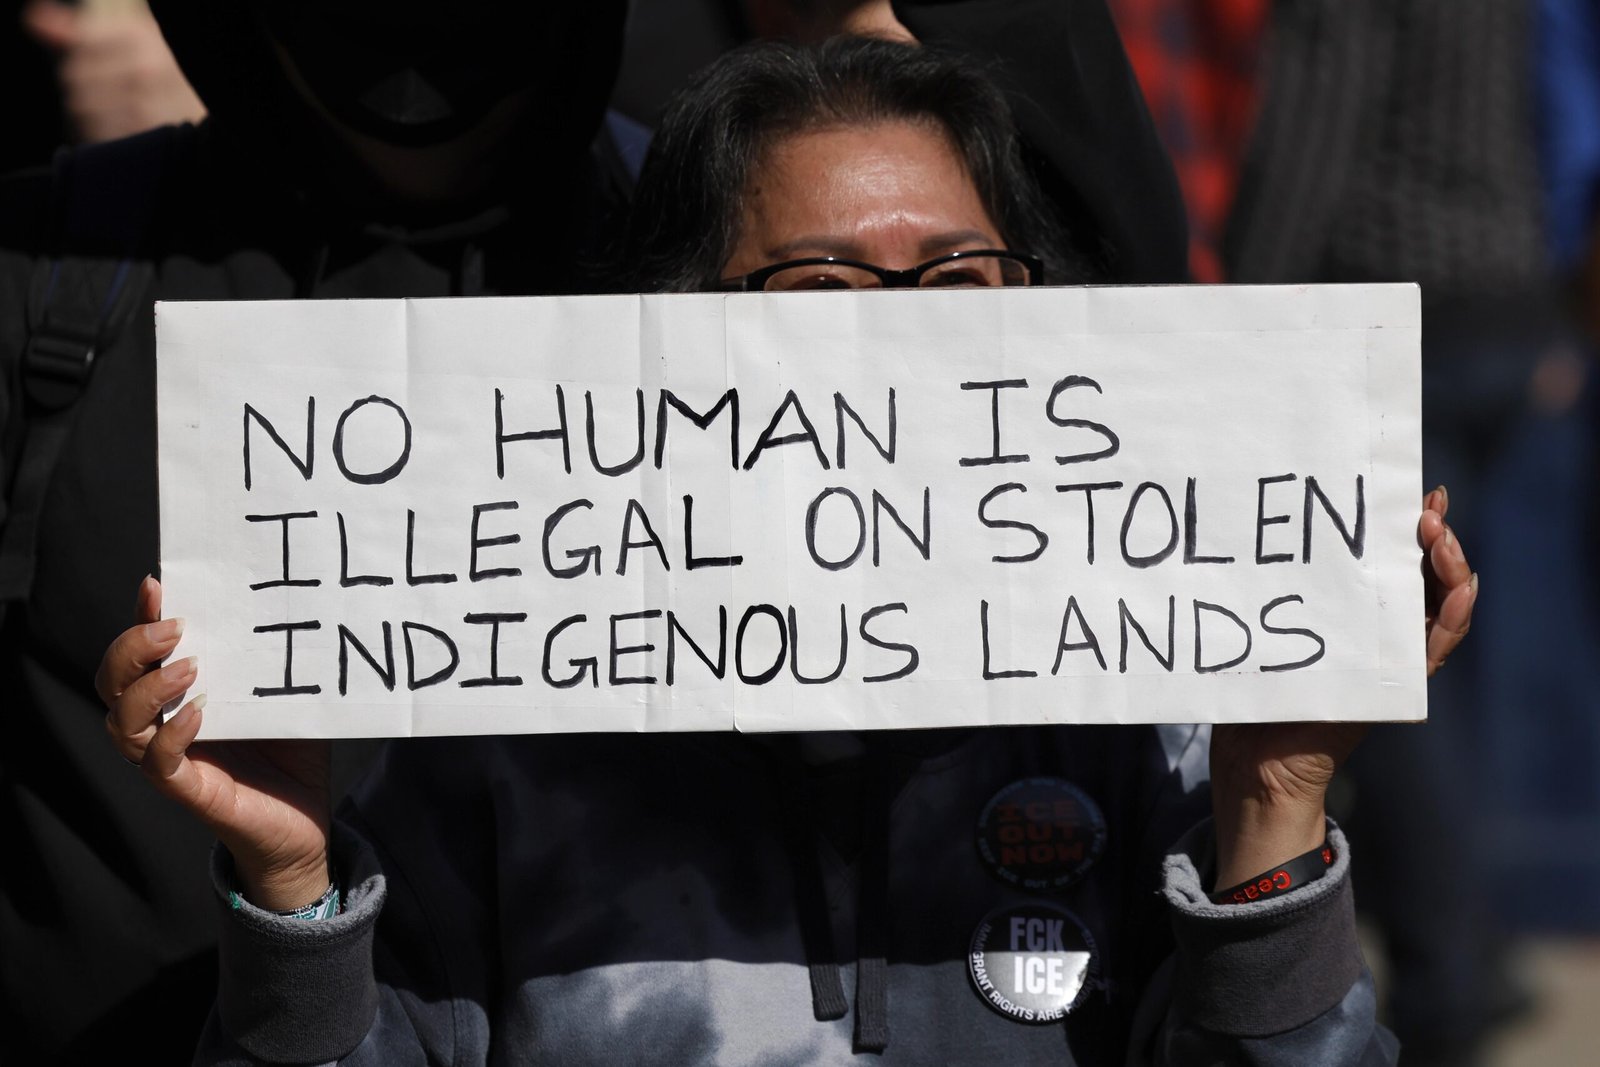 NO HUMAN IS
ILLEGAL ON STOLEN
INDIGENOUS LANDS
ICE
OUT
NOW
FCK
ICE
IMMIGRANT RIGHTS ARE
Ceas